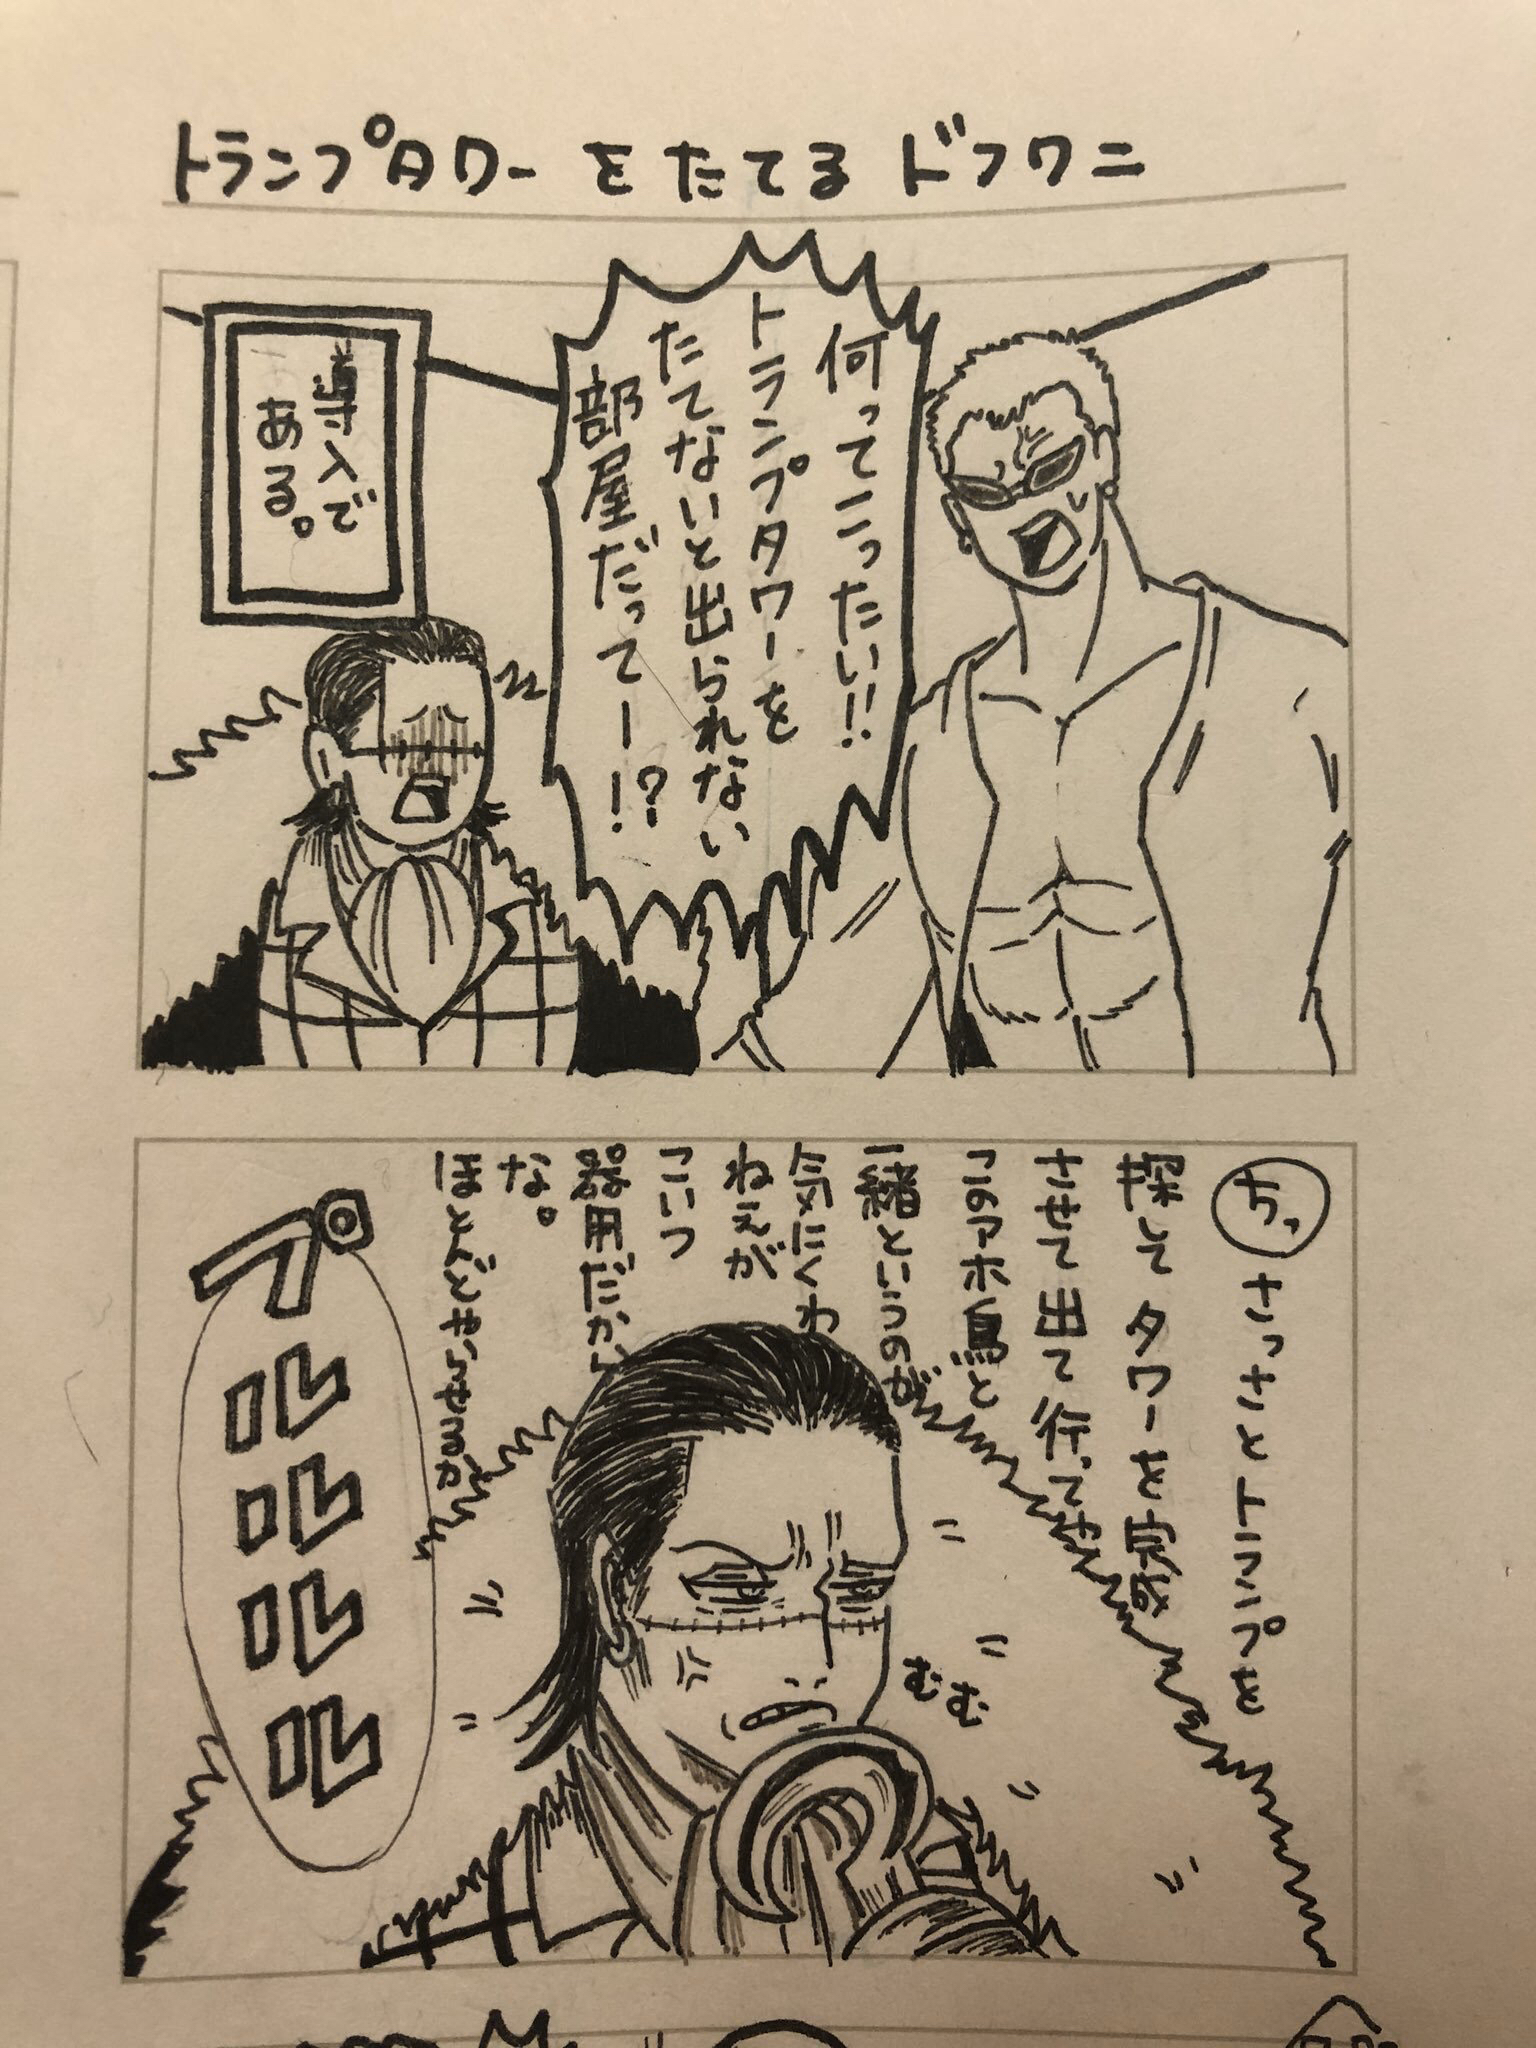 トランプタワーをたてるドフワニ
何ってこったい!!
トランプタワーを
たてないと出られない
部屋だってー!?
導入で
ある。
ちっ
さっさとトランプを
探してタワーを完成
させて出て行ってやる
このアホ鳥と
一緒というのが
気にくわ
ねえが
こいつ
器用だから
な。
ほとんどやらせるか
むむ
プルルルル